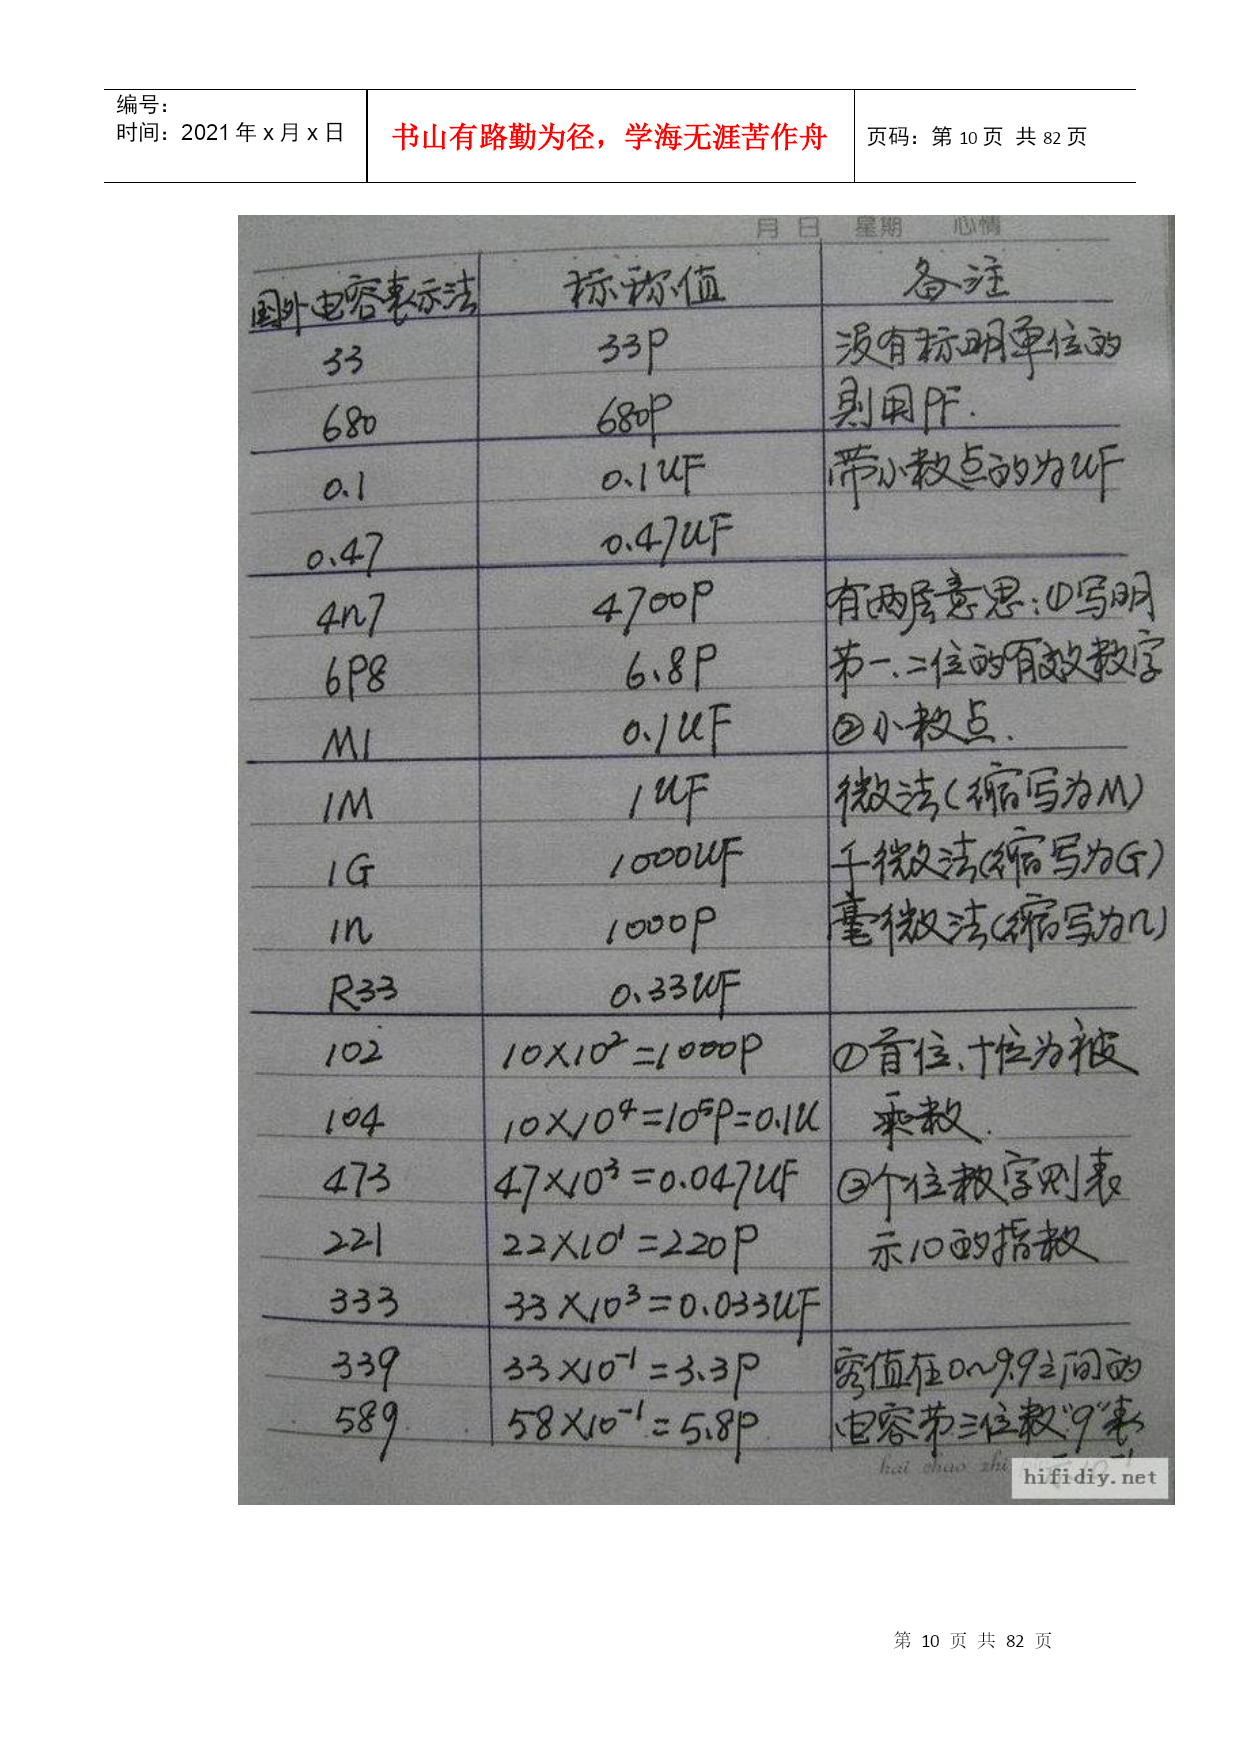 编号：
时间：2021年x月x日
书山有路勤为径，学海无涯苦作舟
页码：第10页 共82页
月 日 星期 心情
国外电容表示法 标称值 备注
33 33P 没有标明单位的
680 680P 则用PF.
0.1 0.1uF 带小数点的为uF
0.47 0.47uF
4n7 4700P 有两层意思:①写明
6P8 6.8P 第一.二位的有效数字
M1 0.1uF ②小数点.
1M 1uF 微法(缩写为M)
1G 1000uF 千微法(缩写为G)
1n 1000P 毫微法(缩写为n)
R33 0.33uF
102 10×10²=1000P ①首位、十位为被
104 10×10⁴=10⁵P=0.1u 乘数.
473 47×10³=0.047uF ②个位数字则表
221 22×10¹=220P 示10的指数
333 33×10³=0.033uF
339 33×10⁻¹=3.3P 容值在0~9.9之间的
589 58×10⁻¹=5.8P 电容第三位数"9"表
hai zhao zhi
hifidiy.net
第 10 页 共 82 页